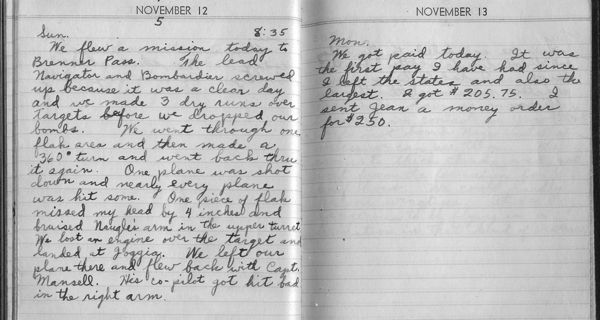 NOVEMBER 12
5
Sun. 8:35
We flew a mission today to
Brenner Pass. The lead
Navigator and Bombardier screwed
up because it was a clear day
and we made 3 dry runs over
targets before we dropped our
bombs. We went through one
flak area and then made a
360° turn and went back thru
it again. One plane was shot
down and nearly every plane
was hit some. One piece of flak
missed my head by 4 inches and
bruised Naugle's arm in the upper turret
We lost an engine over the target and
landed at Foggia. We left our
plane there and flew back with Capt.
Mansell. His co-pilot got hit bad
in the right arm.
NOVEMBER 13
Mon.
We got paid today. It was
the first pay I have had since
I left the states and also the
largest. I got $205.75. I
sent Jean a money order
for $250.